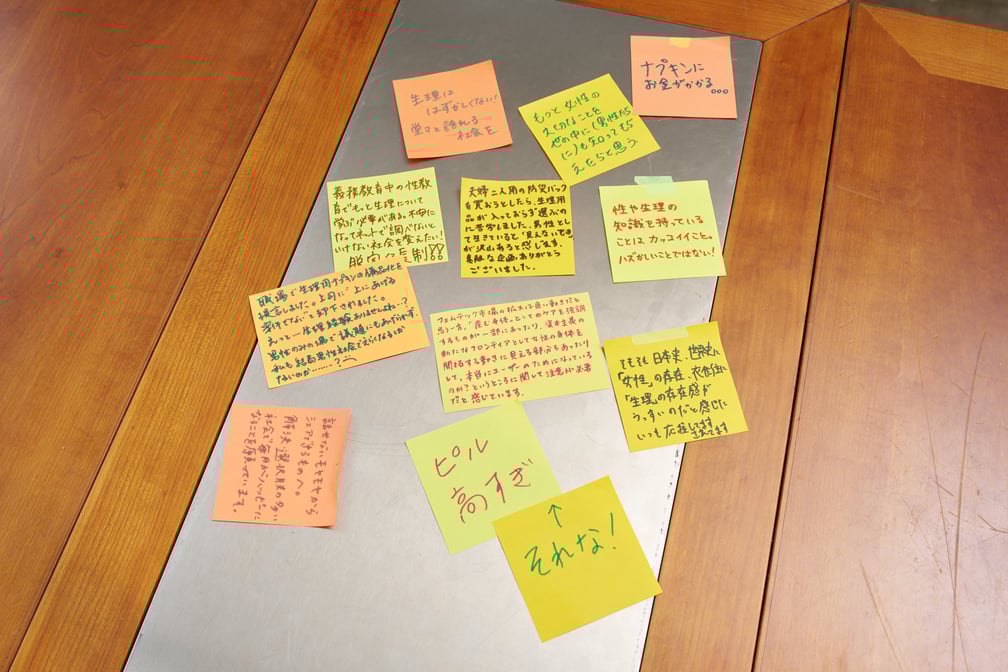 ナプキンに
お金がかかる…
生理は
はずかしくない!
堂々と語れる
社会を
もっと女性の
大切なことを
世の中に(男性たち
に)も知ってもら
えたらと思う
義務教育中の性教
育でもっと生理について
学ぶ必要がある。不安に
なってネットで調べないと
いけない社会を変えたい!
脱定 制!!
夫婦二人用の防災バック
を買おうとしたら、生理用
品が入っておらず選ぶの
に苦労しました。男性とし
て生きていると「見えないもの」
が沢山あると感じます。
素敵な企画ありがとう
ございました。
性や生理の
知識を持っている
ことはカッコイイこと。
ハズかしいことではない!
職場で生理用ナプキンの備品化を
提言しました。上司に"上にあげる
案件でない"と却下されました。
えっと…生理経験ありませんよね…?
男性のみの場で議題にもあげられず、
私も結局男性社会で 
ないのか………?
フェムテック市場の拡大は良い動きだと
思う一方、「産む身体」としてのケアを強調
するものが一部にあったり、資本主義の
新たなフロンティアとして女性の身体を
開拓する動きに見える部分もあったり
して、本当にユーザーのためになっている
のか?というところに関して注意が必要
だと感じています。
そもそも日本史、世界史に
「女性」の存在、衣食住に
「生理」の存在感が
うっすいのだと感じた
いつも応援してます
話せないモヤモヤから
シェアするものへ。
解決選択肢の多い
社会で毎月がハッピーに
なることを願っています。
ピル
高すぎ
↑
それな!